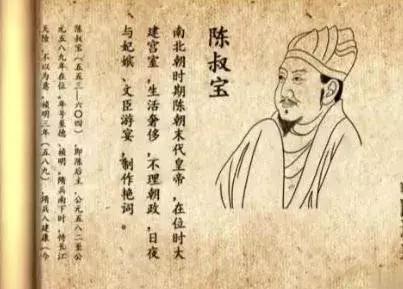 陈叔宝
南北朝时期陈朝末代皇帝，在位时大
建宫室，生活奢侈，不理朝政，日夜
与妃嫔、文臣游宴，制作艳词。
陈叔宝（五五三—六〇四） 即陈后主，公元五八二至公
元五八九年在位，年号至德、祯明。隋兵南下时，恃长江
天险，不以为意，祯明三年（五八九），隋兵入建康（今